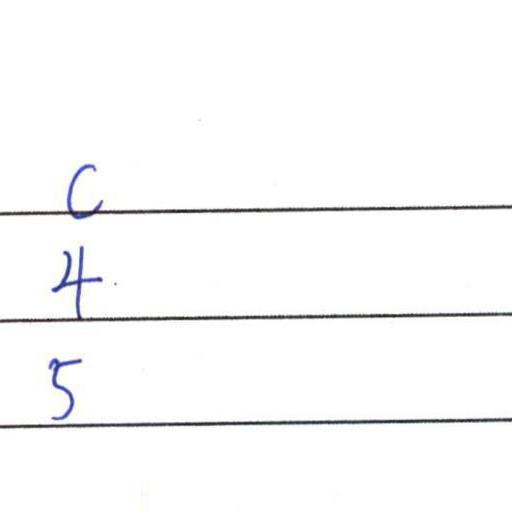 C
4
5